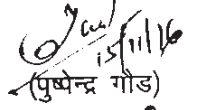 15/11/16
(पुष्पेन्द्र गौड)